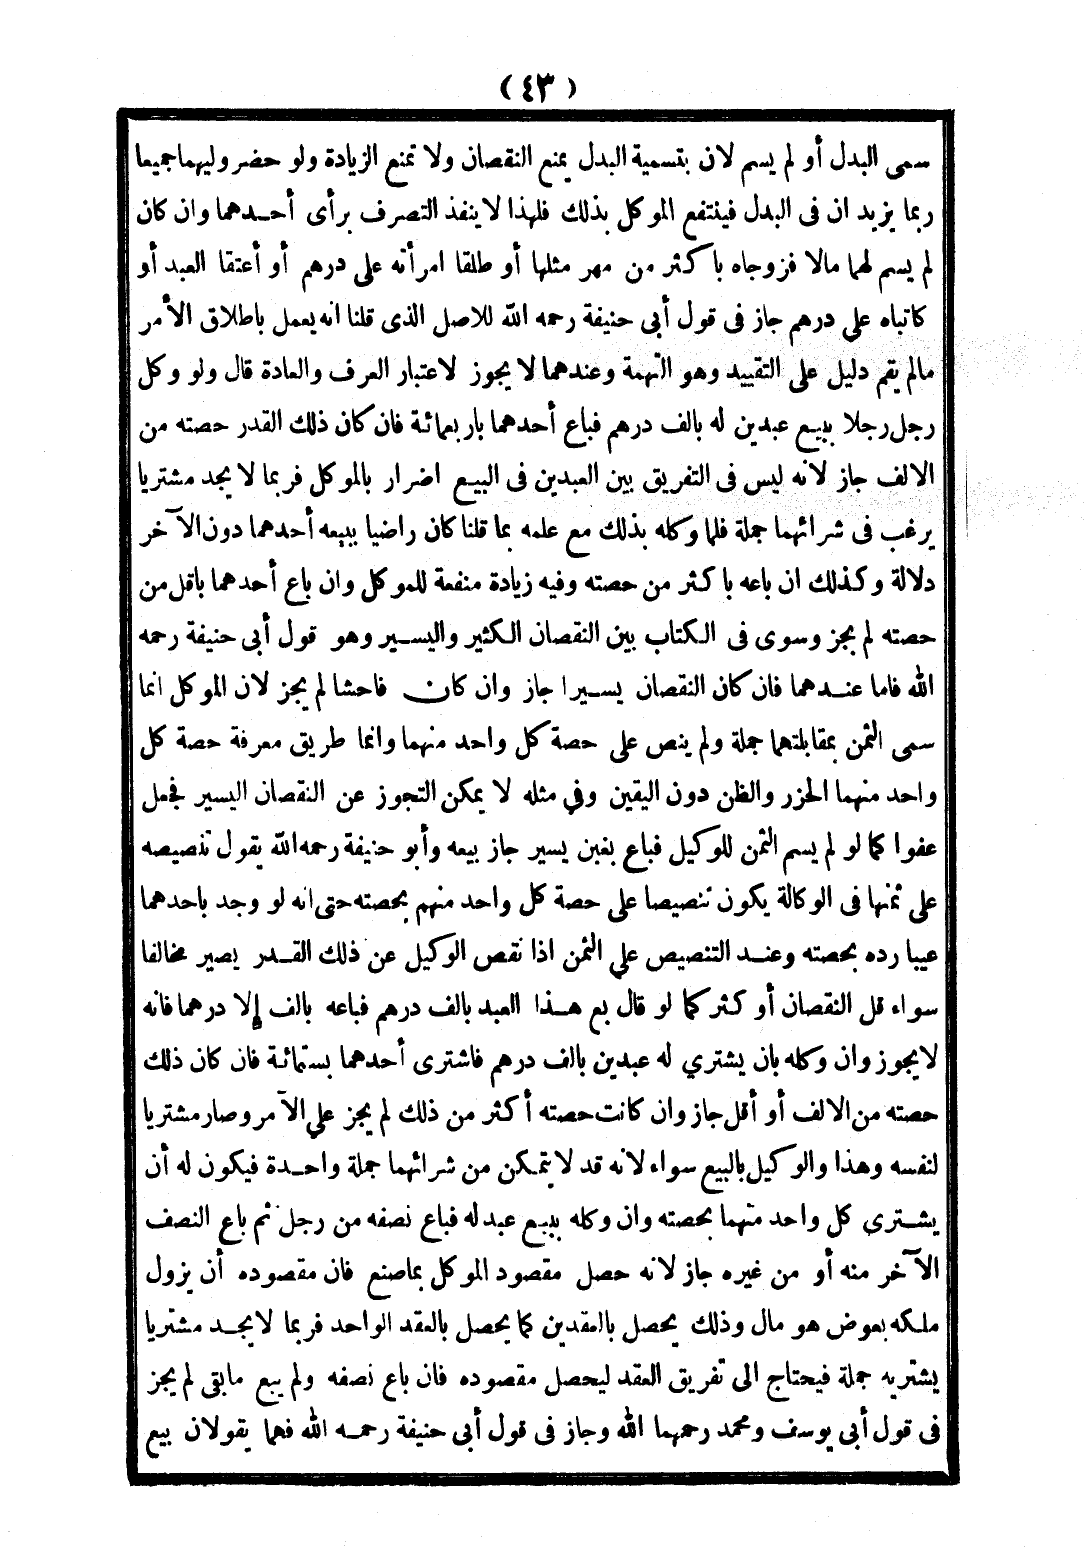 (٤٣)
سمى البدل أو لم يسم لان بتسمية البدل يمنع النقصان ولا تمنع الزيادة ولو حضر وليهما جميعا
ربما يزيد ان فى البدل فينتفع الموكل بذلك فلهذا لا ينفذ التصرف برأى أحدهما وان كان
لم يسم لهما مالا فزوجاه باكثر من مهر مثلها أو طلقا امرأته على درهم أو أعتقا العبد أو
كاتباه على درهم جاز فى قول أبى حنيفة رحمه الله للاصل الذى قلنا انه يعمل باطلاق الأمر
مالم يقم دليل على التقييد وهو التهمة وعندهما لا يجوز لاعتبار العرف والعادة قال ولو وكل
رجل رجلا ببيع عبدين له بالف درهم فباع أحدهما باربعمائة فان كان ذلك القدر حصته من
الالف جاز لانه ليس فى التفريق بين العبدين فى البيع اضرار بالموكل فربما لا يجد مشتريا
يرغب فى شرائهما جملة فلما وكله بذلك مع علمه بما قلنا كان راضيا ببيعه أحدهما دون الآخر
دلالة وكذلك ان باعه باكثر من حصته وفيه زيادة منفعة للموكل وان باع أحدهما باقل من
حصته لم يجز وسوى فى الكتاب بين النقصان الكثير واليسير وهو قول أبى حنيفة رحمه
الله فاما عندهما فان كان النقصان يسيرا جاز وان كان فاحشا لم يجز لان الموكل انما
سمى الثمن بمقابلتهما جملة ولم ينص على حصة كل واحد منهما وانما طريق معرفة حصة كل
واحد منهما الحزر والظن دون اليقين وفي مثله لا يمكن التجوز عن النقصان اليسير فجعل
عفوا كما لو لم يسم الثمن للوكيل فباع بغبن يسير جاز بيعه وأبو حنيفة رحمه الله يقول تنصيصه
على ثمنها فى الوكالة يكون تنصيصا على حصة كل واحد منهم بحصته حتى انه لو وجد باحدهما
عيبا رده بحصته وعند التنصيص علي الثمن اذا نقص الوكيل عن ذلك القدر يصير مخالفا
سواء قل النقصان أو كثر كما لو قال بع هذا العبد بالف درهم فباعه بالف إلا درهما فانه
لا يجوز وان وكله بان يشتري له عبدين بالف درهم فاشترى أحدهما بستمائة فان كان ذلك
حصته من الالف أو أقل جاز وان كانت حصته أكثر من ذلك لم يجز علي الآمر وصار مشتريا
لنفسه وهذا والوكيل بالبيع سواء لانه قد لا يتمكن من شرائهما جملة واحدة فيكون له أن
يشترى كل واحد منهما بحصته وان وكله ببيع عبد له فباع نصفه من رجل ثم باع النصف
الآخر منه أو من غيره جاز لانه حصل مقصود الموكل بماصنع فان مقصوده أن يزول
ملكه بعوض هو مال وذلك يحصل بالعقدين كما يحصل بالعقد الواحد فربما لا يجد مشتريا
يشتريه جملة فيحتاج الى تفريق العقد ليحصل مقصوده فان باع نصفه ولم يبع مابقى لم يجز
فى قول أبى يوسف ومحمد رحمهما الله وجاز فى قول أبى حنيفة رحمه الله فهما يقولان بيع